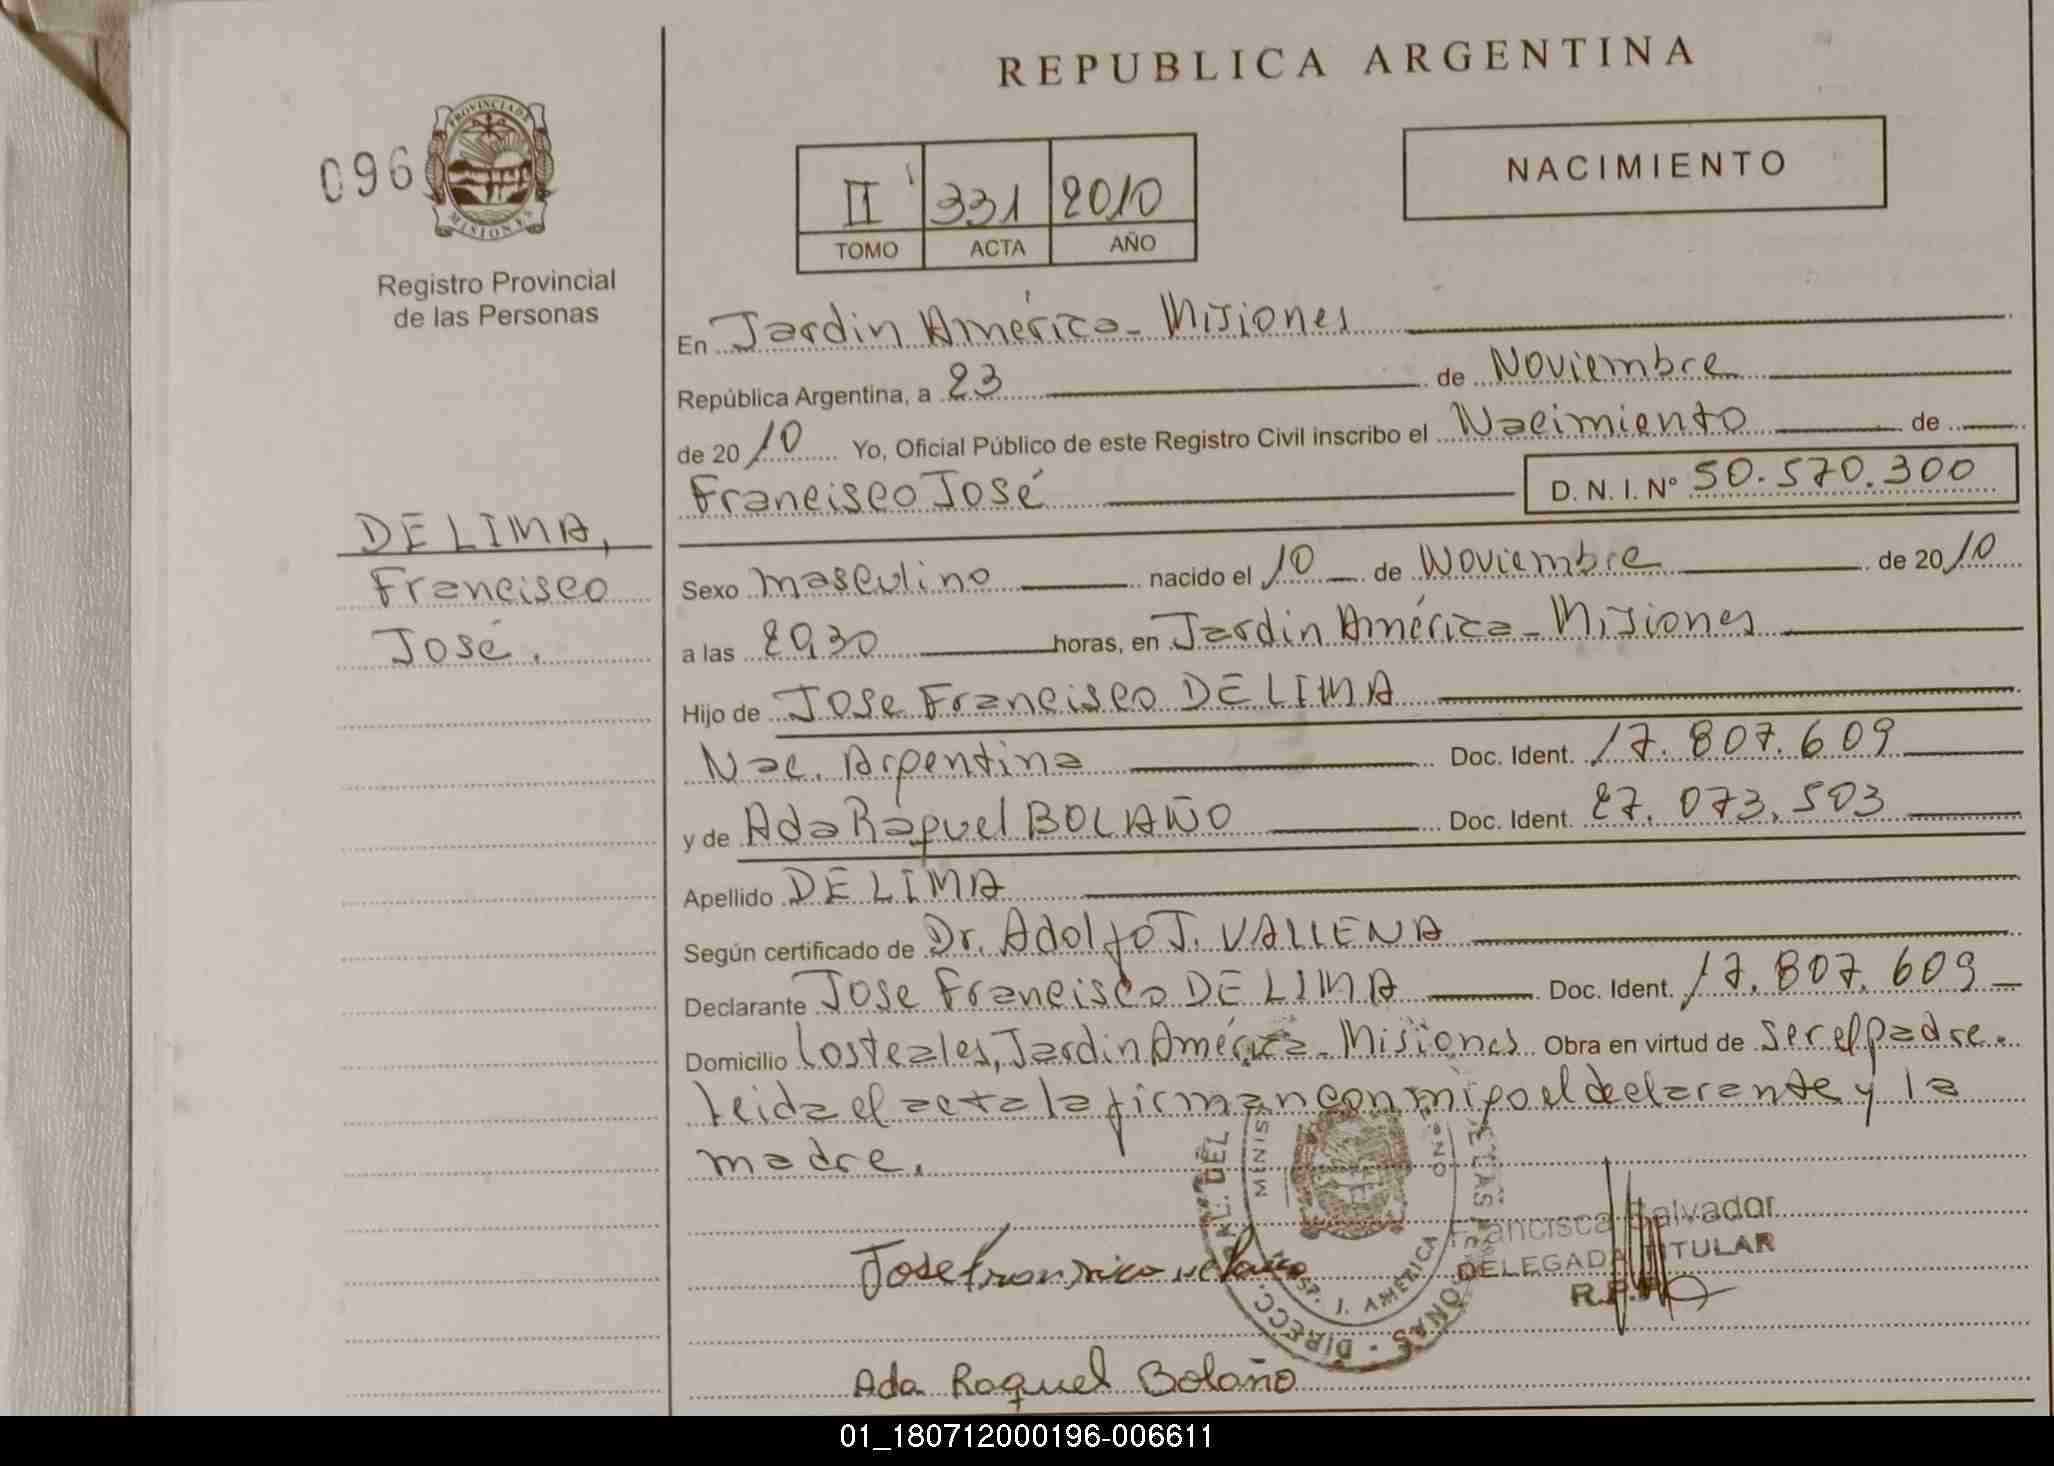 REPUBLICA ARGENTINA
096
PROVINCIA DE
MISIONES
Registro Provincial
de las Personas
II 331 2010
TOMO ACTA AÑO
NACIMIENTO
En Jardin América - Misiones
República Argentina, a 23 de Noviembre
de 2010 Yo, Oficial Público de este Registro Civil inscribo el Nacimiento de
Francisco José
D. N. I. N° 50.570.300
DE LIMA,
Francisco
José.
Sexo masculino nacido el 10 de Noviembre de 2010
a las 20,30 horas, en Jardin América - Misiones
Hijo de Jose Francisco DE LIMA
Nac. Argentina Doc. Ident. 17.807.609
y de Ada Raquel BOLAÑO Doc. Ident. 27.073.503
Apellido DE LIMA
Según certificado de Dr. Adolfo J. VALLENA
Declarante Jose Francisco DE LIMA Doc. Ident. 17.807.609
Domicilio Los teales, Jardin América - Misiones Obra en virtud de ser el padre.
Leida el acta la firman conmigo el declarante y la
madre.
Francisca Salvador
DELEGADA TITULAR
Jose Francisco
Ada Raquel Bolaño
01_180712000196-006611